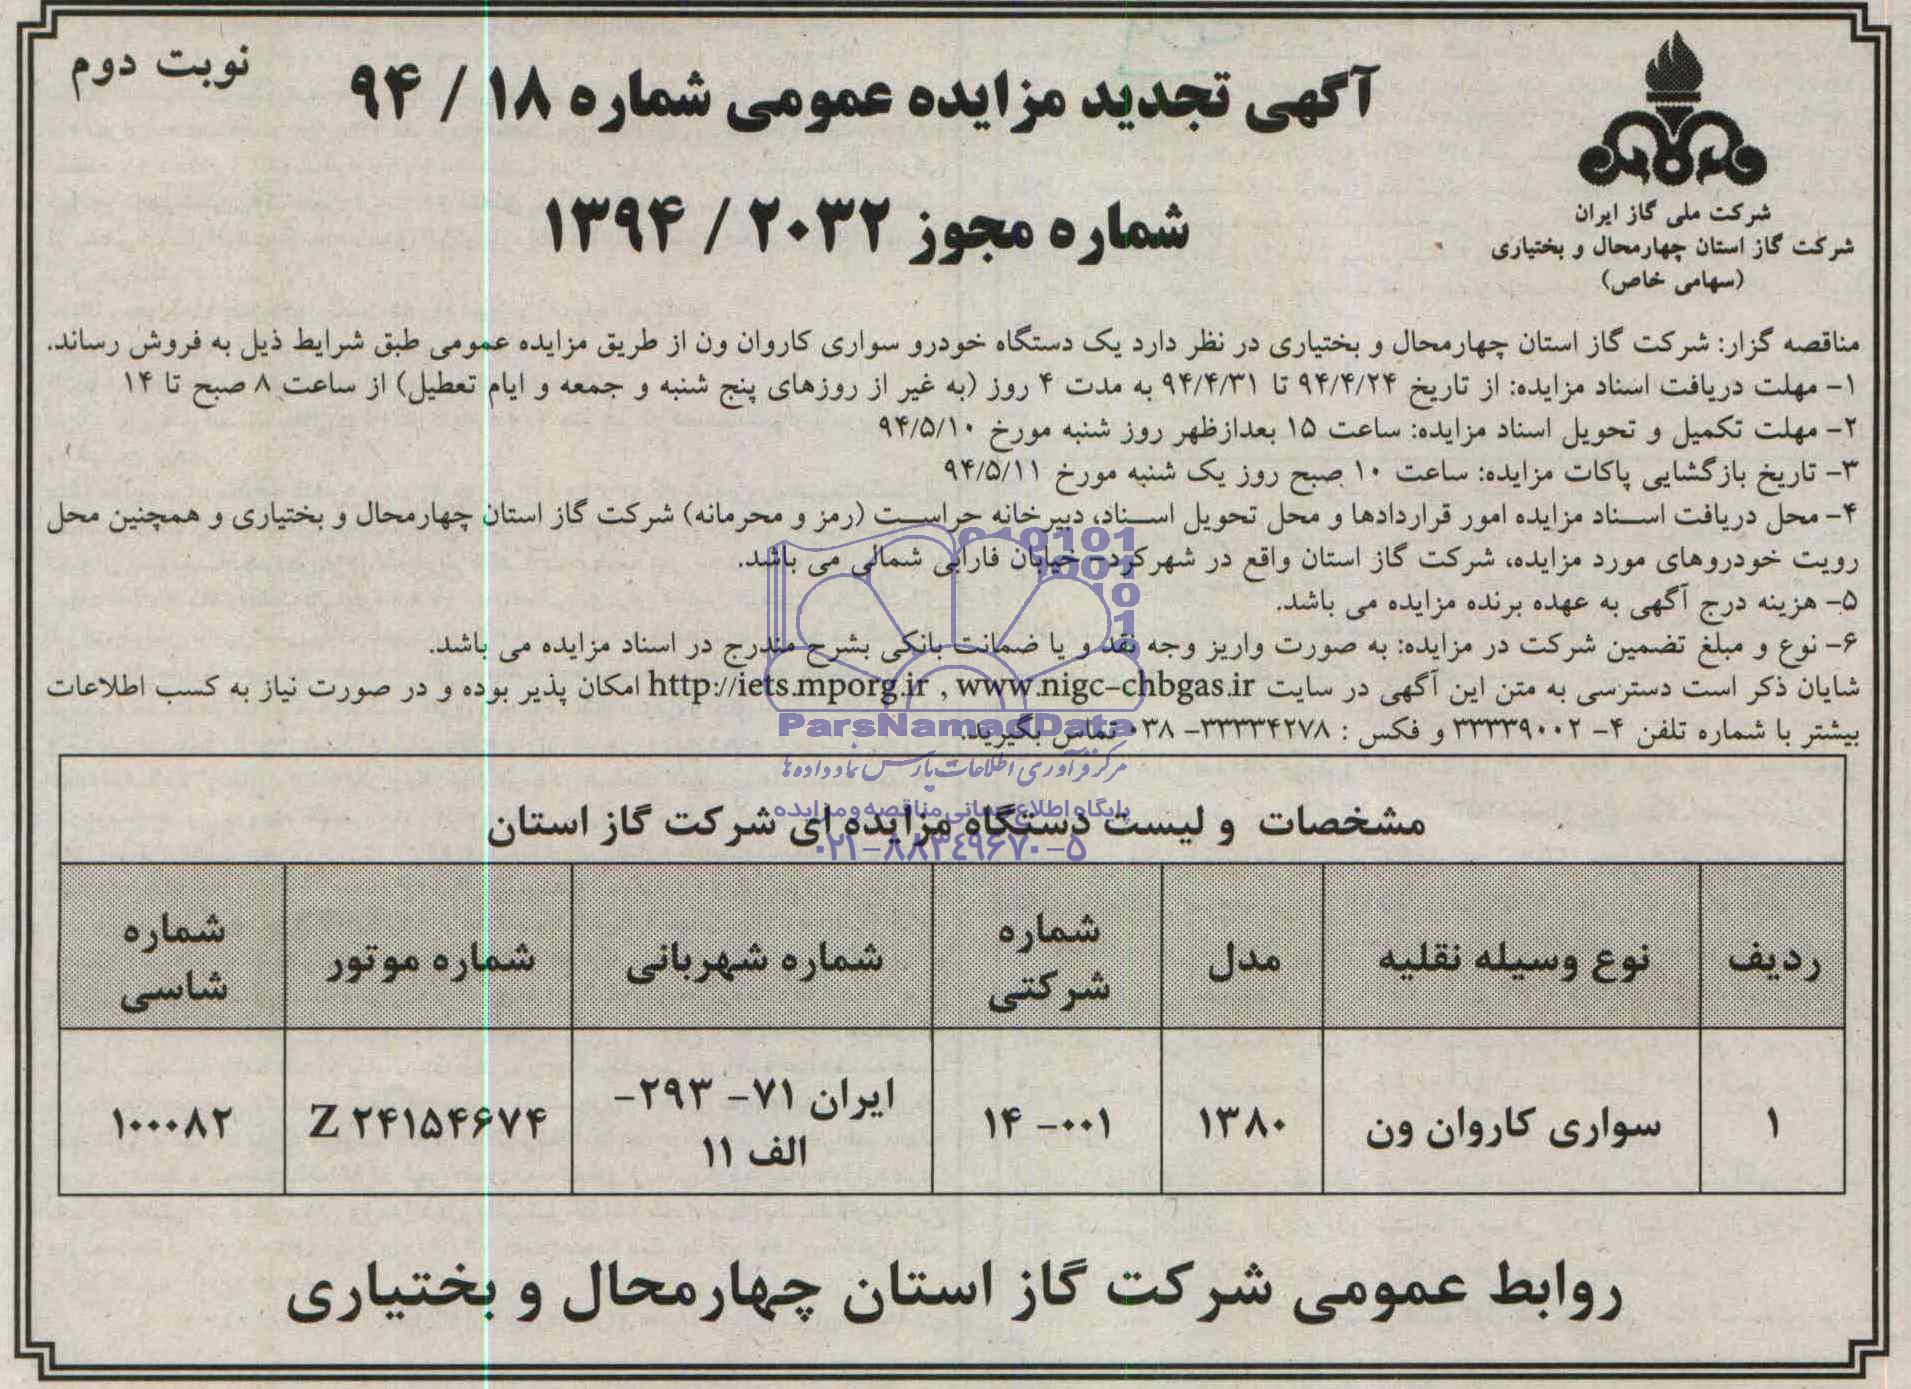 نوبت دوم
آگهی تجدید مزایده عمومی شماره ۱۸ / ۹۴
شماره مجوز ۲۰۳۲ / ۱۳۹۴
شرکت ملی گاز ایران
شرکت گاز استان چهارمحال و بختیاری
(سهامی خاص)
مناقصه گزار: شرکت گاز استان چهارمحال و بختیاری در نظر دارد یک دستگاه خودرو سواری کاروان ون از طریق مزایده عمومی طبق شرایط ذیل به فروش رساند.
۱- مهلت دریافت اسناد مزایده: از تاریخ ۹۴/۴/۲۴ تا ۹۴/۴/۳۱ به مدت ۴ روز (به غیر از روزهای پنج شنبه و جمعه و ایام تعطیل) از ساعت ۸ صبح تا ۱۴
۲- مهلت تکمیل و تحویل اسناد مزایده: ساعت ۱۵ بعدازظهر روز شنبه مورخ ۹۴/۵/۱۰
۳- تاریخ بازگشایی پاکات مزایده: ساعت ۱۰ صبح روز یک شنبه مورخ ۹۴/۵/۱۱
۴- محل دریافت اسناد مزایده امور قراردادها و محل تحویل اسناد، دبیرخانه حراست (رمز و محرمانه) شرکت گاز استان چهارمحال و بختیاری و همچنین محل
رویت خودروهای مورد مزایده، شرکت گاز استان واقع در شهرکرد- خیابان فارابی شمالی می باشد.
۵- هزینه درج آگهی به عهده برنده مزایده می باشد.
۶- نوع و مبلغ تضمین شرکت در مزایده: به صورت واریز وجه نقد و یا ضمانت بانکی بشرح مندرج در اسناد مزایده می باشد.
شایان ذکر است دسترسی به متن این آگهی در سایت http://iets.mporg.ir , www.nigc-chbgas.ir امکان پذیر بوده و در صورت نیاز به کسب اطلاعات
بیشتر با شماره تلفن ۴- ۳۳۳۳۹۰۰۲ و فکس : ۳۳۳۳۴۲۷۸- ۰۳۸ تماس بگیرید.
010101
001
10
1
ParsNamadData
مرکز فرآوری اطلاعات پارس نماد داده ها
پایگاه اطلاع رسانی مناقصه و مزایده
۰۲۱-۸۸۳۴۹۶۷۰-۵
مشخصات و لیست دستگاه مزایده ای شرکت گاز استان
ردیف نوع وسیله نقلیه مدل شماره شرکتی شماره شهربانی شماره موتور شماره شاسی
۱ سواری کاروان ون ۱۳۸۰ ۰۰۱- ۱۴ ایران ۷۱- ۲۹۳- الف ۱۱ Z ۲۴۱۵۴۶۷۴ ۱۰۰۰۸۲
روابط عمومی شرکت گاز استان چهارمحال و بختیاری